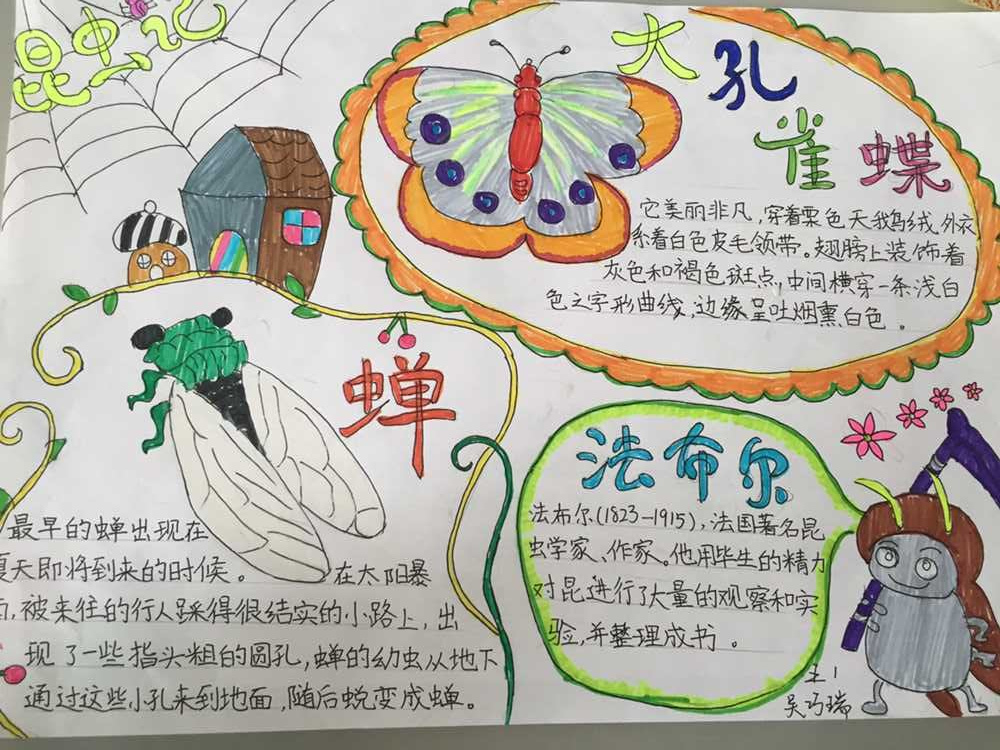 昆虫记
大孔雀蝶
它美丽非凡，穿着栗色天鹅绒外衣
系着白色皮毛领带。翅膀上装饰着
灰色和褐色斑点，中间横穿一条浅白
色之字形曲线，边缘呈吐烟熏白色。
蝉
最早的蝉出现在
夏天即将到来的时候。
在太阳暴
被来往的行人踩得很结实的小路上，出
现了一些指头粗的圆孔，蝉的幼虫从地下
通过这些小孔来到地面，随后蜕变成蝉。
法布尔
法布尔(1823-1915)，法国著名昆
虫学家、作家。他用毕生的精力
对昆进行了大量的观察和实
验，并整理成书。
吴巧瑞